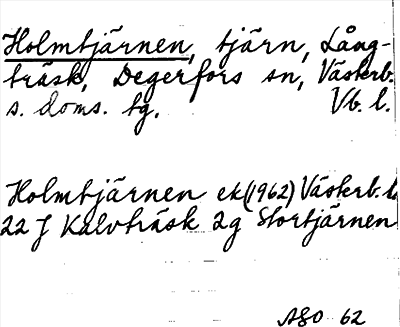 Holmtjärnen, tjärn, Lång-
träsk, Degerfors sn, Västerb.
s. doms. tg. Vb. l.
Holmtjärnen ek (1962) Västerb. l.
22 J Kalvträsk 2g Stortjärnen
ASO 62